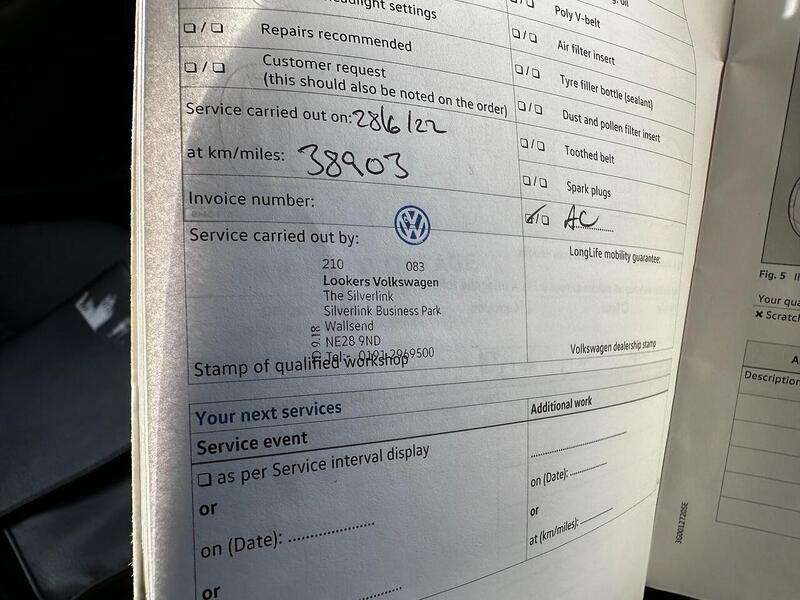 headlight settings
☐ / ☐ Repairs recommended
☐ / ☐ Customer request
(this should also be noted on the order)
Service carried out on: 28/6/22
at km/miles: 38903
Invoice number:
Service carried out by:
210 083
Lookers Volkswagen
The Silverlink
Silverlink Business Park
Wallsend
NE28 9ND
Tel: 0191 2969500
9.18
Stamp of qualified workshop
☐ / ☐ Poly V-belt
☐ / ☐ Air filter insert
☐ / ☐ Tyre filler bottle (sealant)
☐ / ☐ Dust and pollen filter insert
☐ / ☐ Toothed belt
☐ / ☐ Spark plugs
☑ / ☐ AC
LongLife mobility guarantee:
Volkswagen dealership stamp
Your next services
Service event
☐ as per Service interval display
or
on (Date): ....................
or
Additional work
....................
on (Date): ..........
or
at (km/miles): ..........
3G0012720SE
Fig. 5
Your
✖
Description